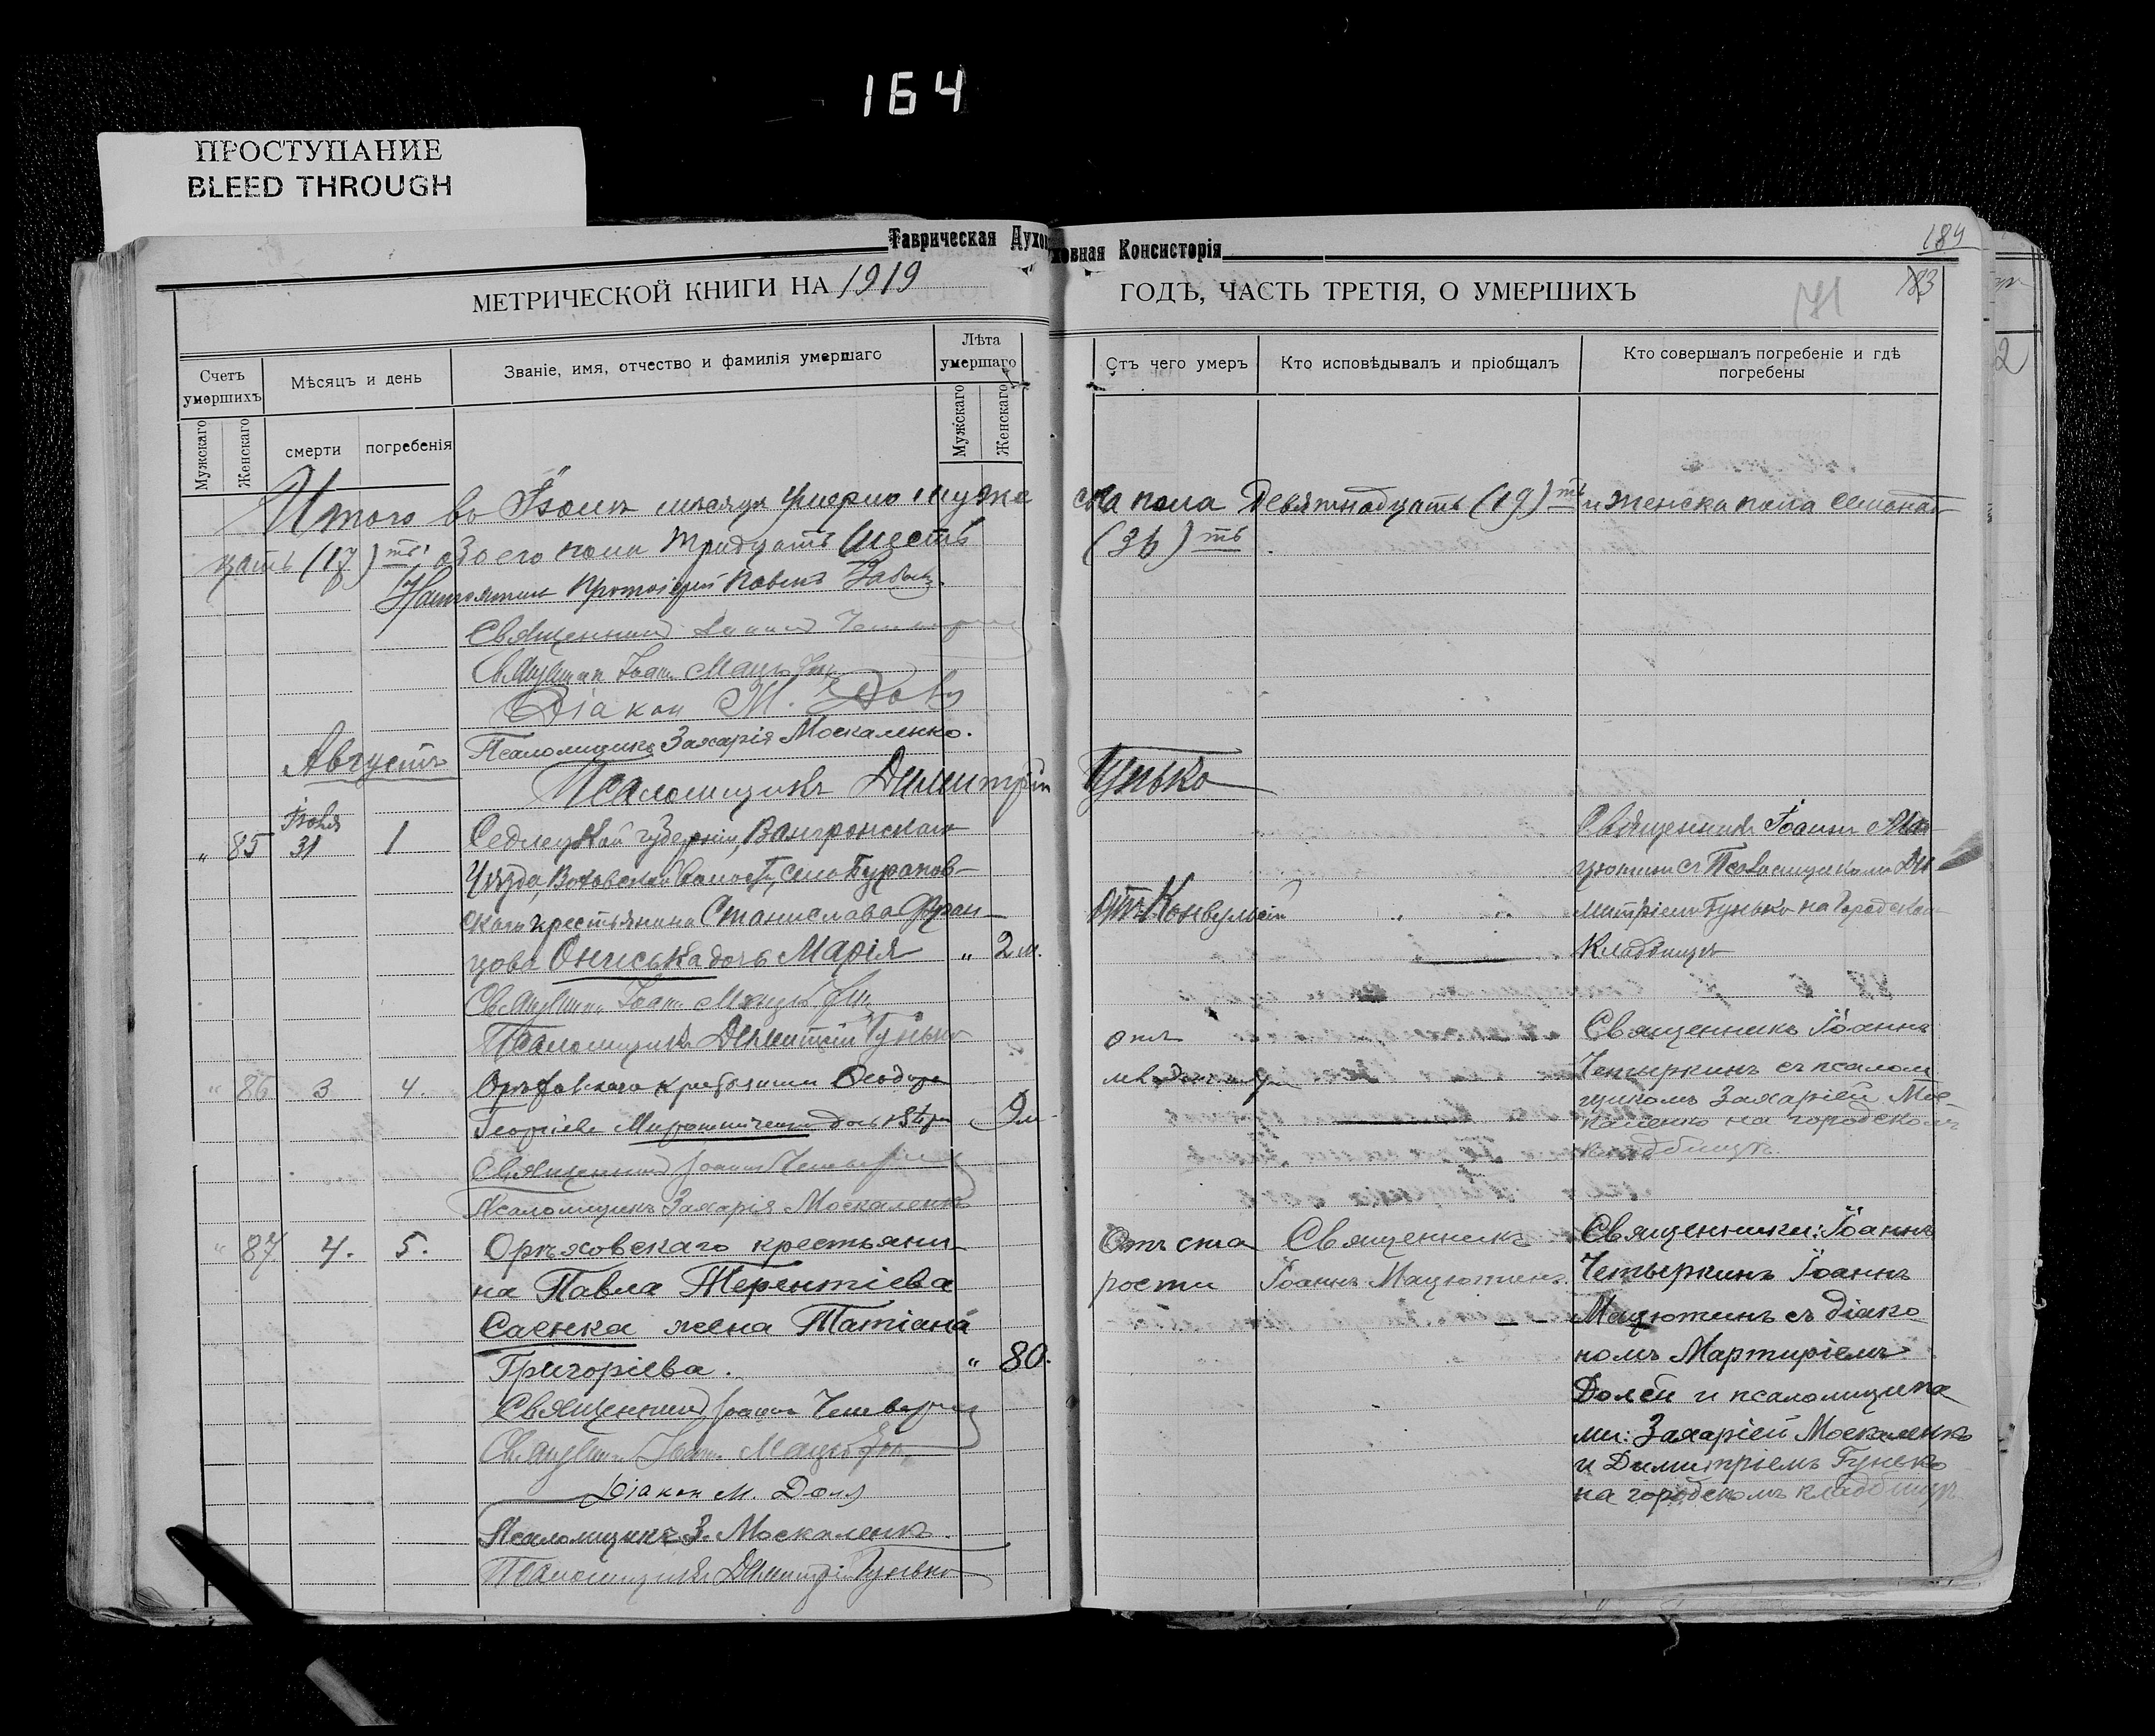 164
ПРОСТУПАНИЕ
BLEED THROUGH
Таврическая Духовная Консисторія
184
МЕТРИЧЕСКОЙ КНИГИ НА 1919 ГОДЪ, ЧАСТЬ ТРЕТІЯ, О УМЕРШИХЪ
183
171
Счетъ умершихъ
Мѣсяцъ и день
Званіе, имя, отчество и фамилія умершаго
Лѣта умершаго
Отъ чего умеръ
Кто исповѣдывалъ и пріобщалъ
Кто совершалъ погребеніе и гдѣ погребены
Мужскаго
Женскаго
смерти
погребенія
Мужскаго
Женскаго
Итого въ Іюлѣ мѣсяцѣ умерло мужеска пола девятнадцать (19)ть и женска пола семнад-
цать (17)ть, обоего пола тридцать шесть (36)ть.
Настоятель Протоіерей Павелъ
Священникъ Іоаннъ Четыркинъ
Священникъ Іоаннъ Мацютинъ
Діаконъ М. Доля
Псаломщикъ Захарія Москаленко.
Августъ
Псаломщикъ Димитрій Гунько
" 85 Іюля 31 1
Седлецкой губерніи,
Уѣзда, волости, села
скаго крестьянина Станислава Фран-
цова Ониська дочь Марія " 2 м.
Отъ Конвульсій
Священникъ Іоаннъ Ма-
цютинъ съ Псаломщикомъ Ди-
митріемъ Гунько на Городском
Кладбищѣ
Священникъ Іоаннъ Мацютинъ
Псаломщикъ Димитрій Гунько
" 86 3 4.
Орѣховскаго
Георгіева дочь
9 м
отъ
Священникъ Іоаннъ
Четыркинъ съ псалом
щикомъ Захаріей Мос-
каленко на городскомъ
кладбищѣ.
Священникъ Іоаннъ Четыркинъ
Псаломщикъ Захарія Москаленко
" 87 4. 5.
Орѣховскаго крестьяни-
на Павла Терентіева
Саенка жена Татіана
Григоріева. " 80.
Отъ ста
рости
Священникъ
Іоаннъ Мацютинъ.
Священники: Іоаннъ
Четыркинъ Іоаннъ
Мацютинъ съ діако
номъ Мартиріемъ
Долей и псаломщика
ми: Захаріей Москаленко
и Димитріемъ Гунько
на городскомъ кладбищѣ.
Священникъ Іоаннъ Четыркинъ
Священникъ Іоаннъ Мацютинъ
Діаконъ М. Доля
Псаломщикъ З. Москаленко.
Псаломщикъ Димитрій Гунько
2